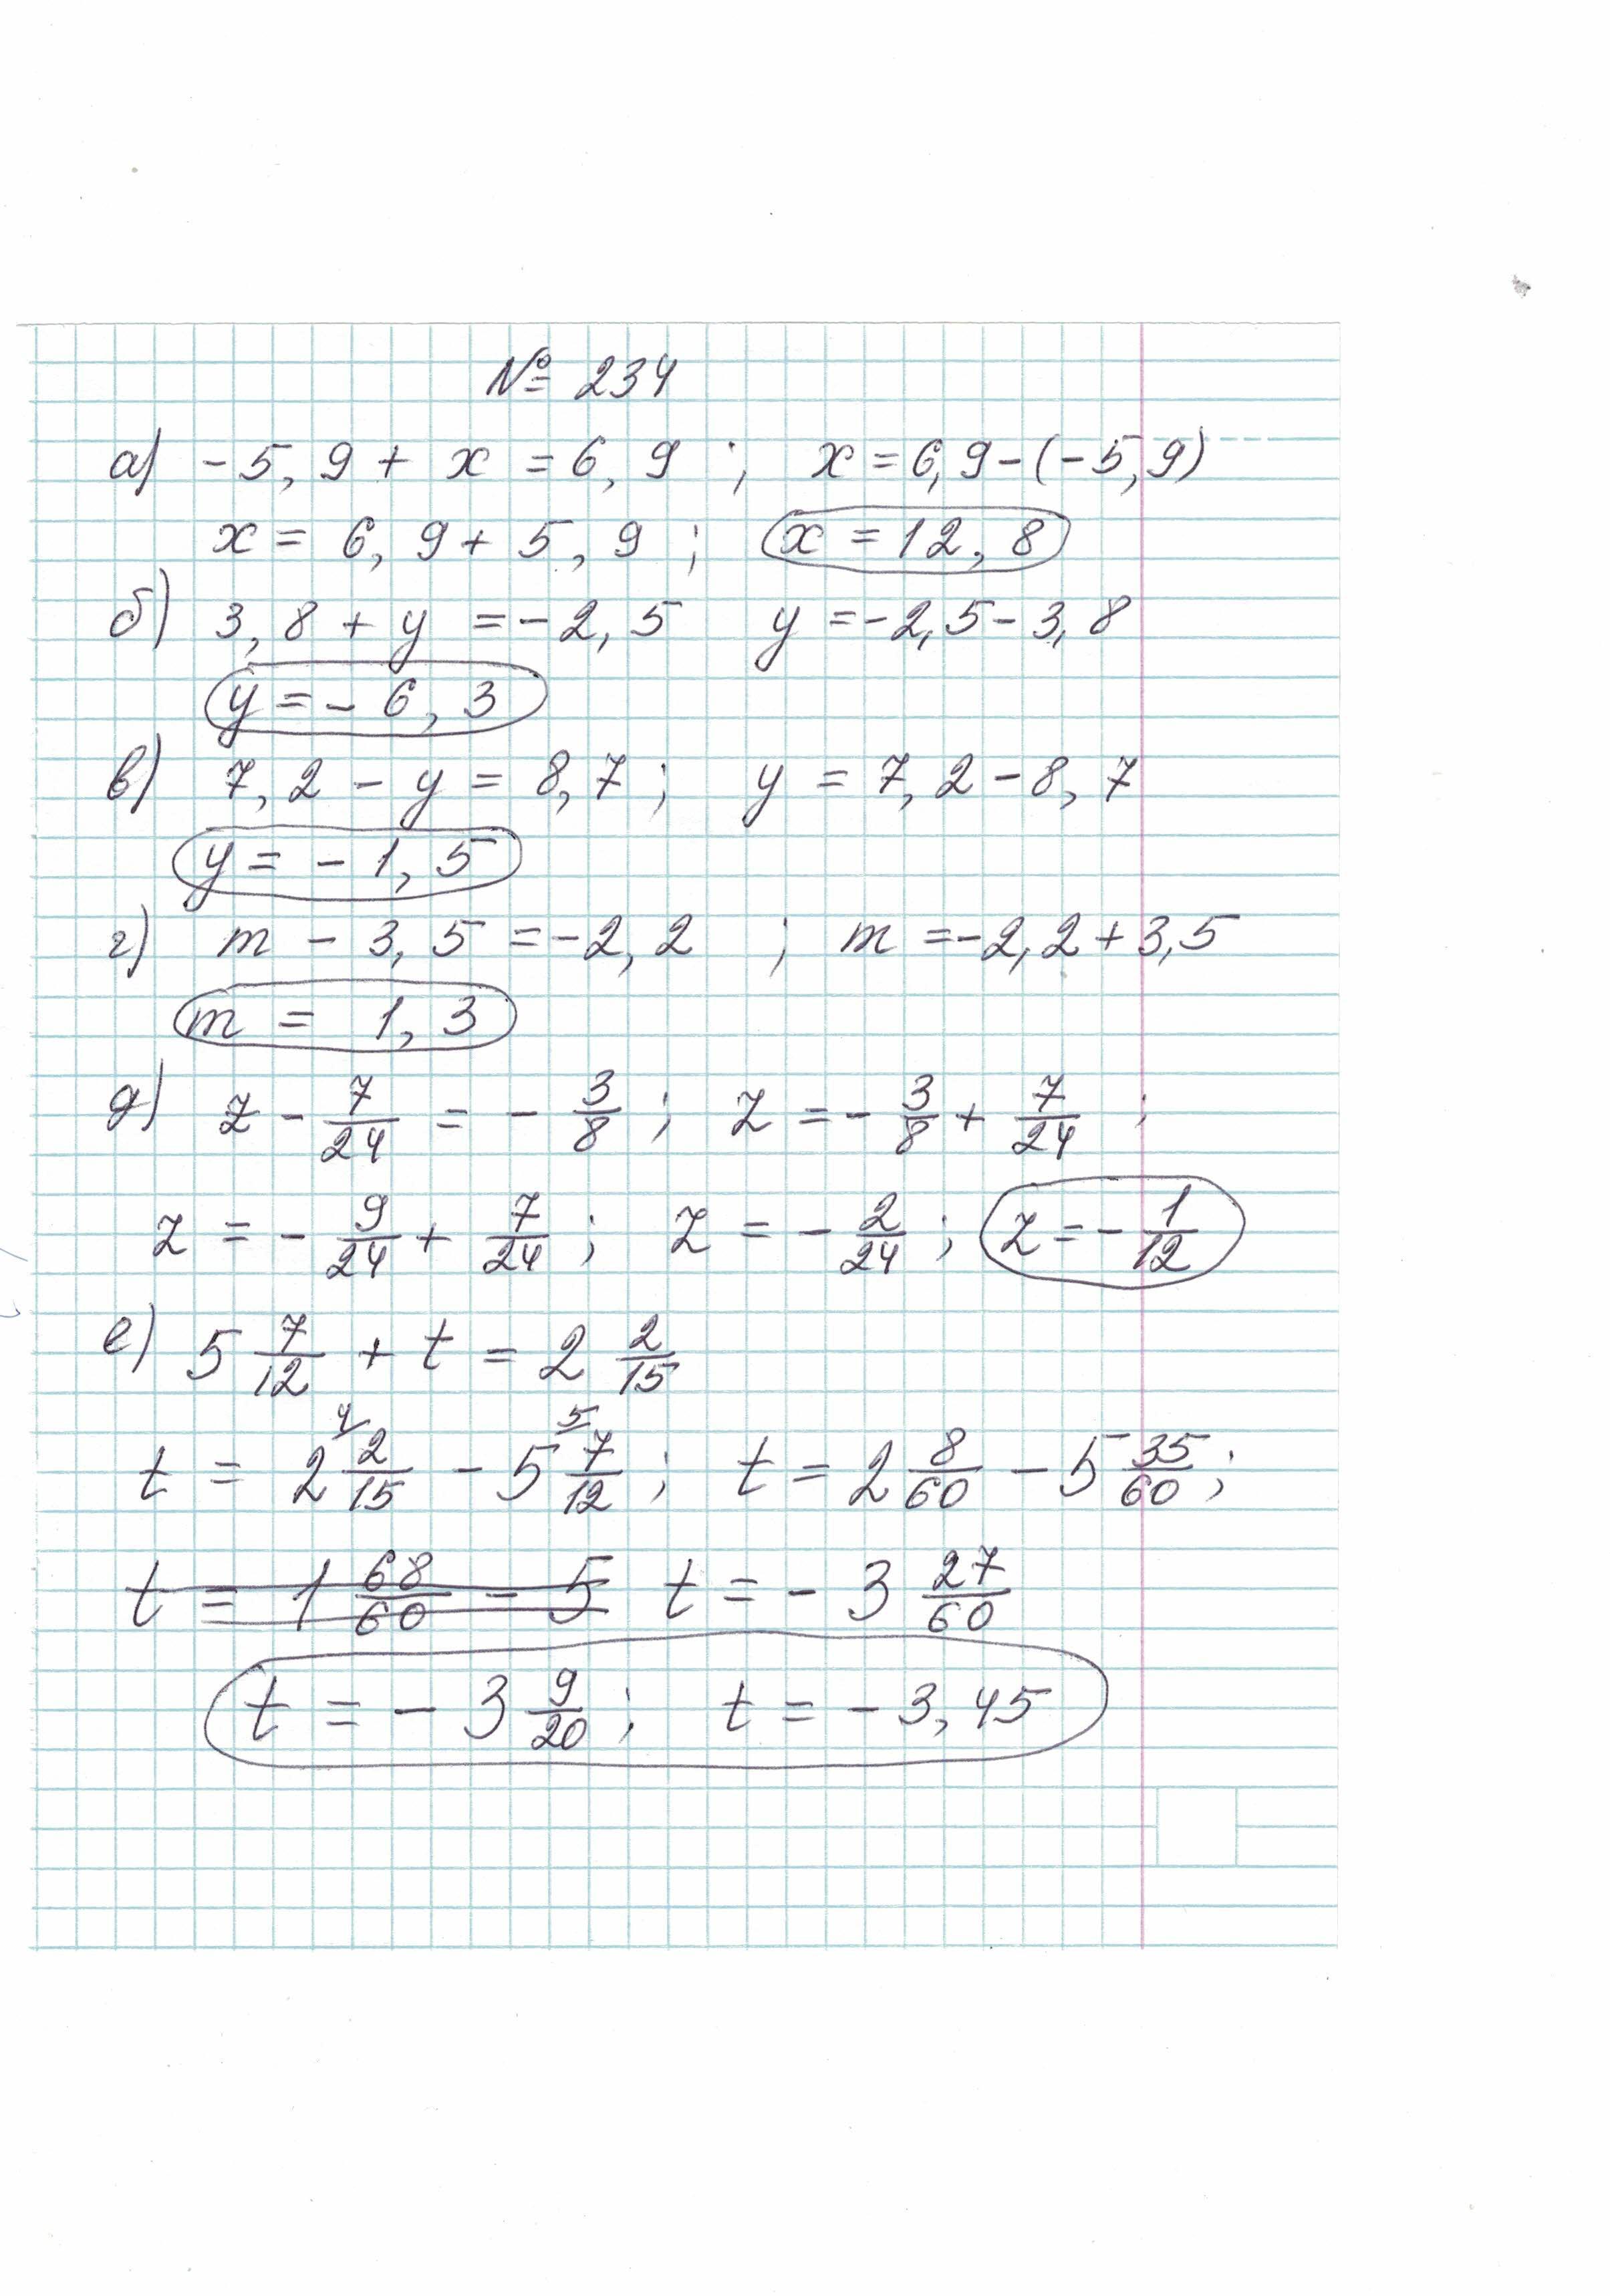 № 234
а) -5,9 + x = 6,9 ; x = 6,9 - (-5,9)
x = 6,9 + 5,9 ; x = 12,8
б) 3,8 + y = -2,5 y = -2,5 - 3,8
y = -6,3
в) 7,2 - y = 8,7 ; y = 7,2 - 8,7
y = -1,5
г) m - 3,5 = -2,2 ; m = -2,2 + 3,5
m = 1,3
д) z - 7/24 = - 3/8 ; z = - 3/8 + 7/24 ;
z = - 9/24 + 7/24 ; z = - 2/24 ; z = - 1/12
е) 5 7/12 + t = 2 2/15
t = 2 2/15 ⁴ - 5 7/12 ⁵ ; t = 2 8/60 - 5 35/60 ;
t = 1 68/60 - 5 t = - 3 27/60
t = - 3 9/20 ; t = - 3,45